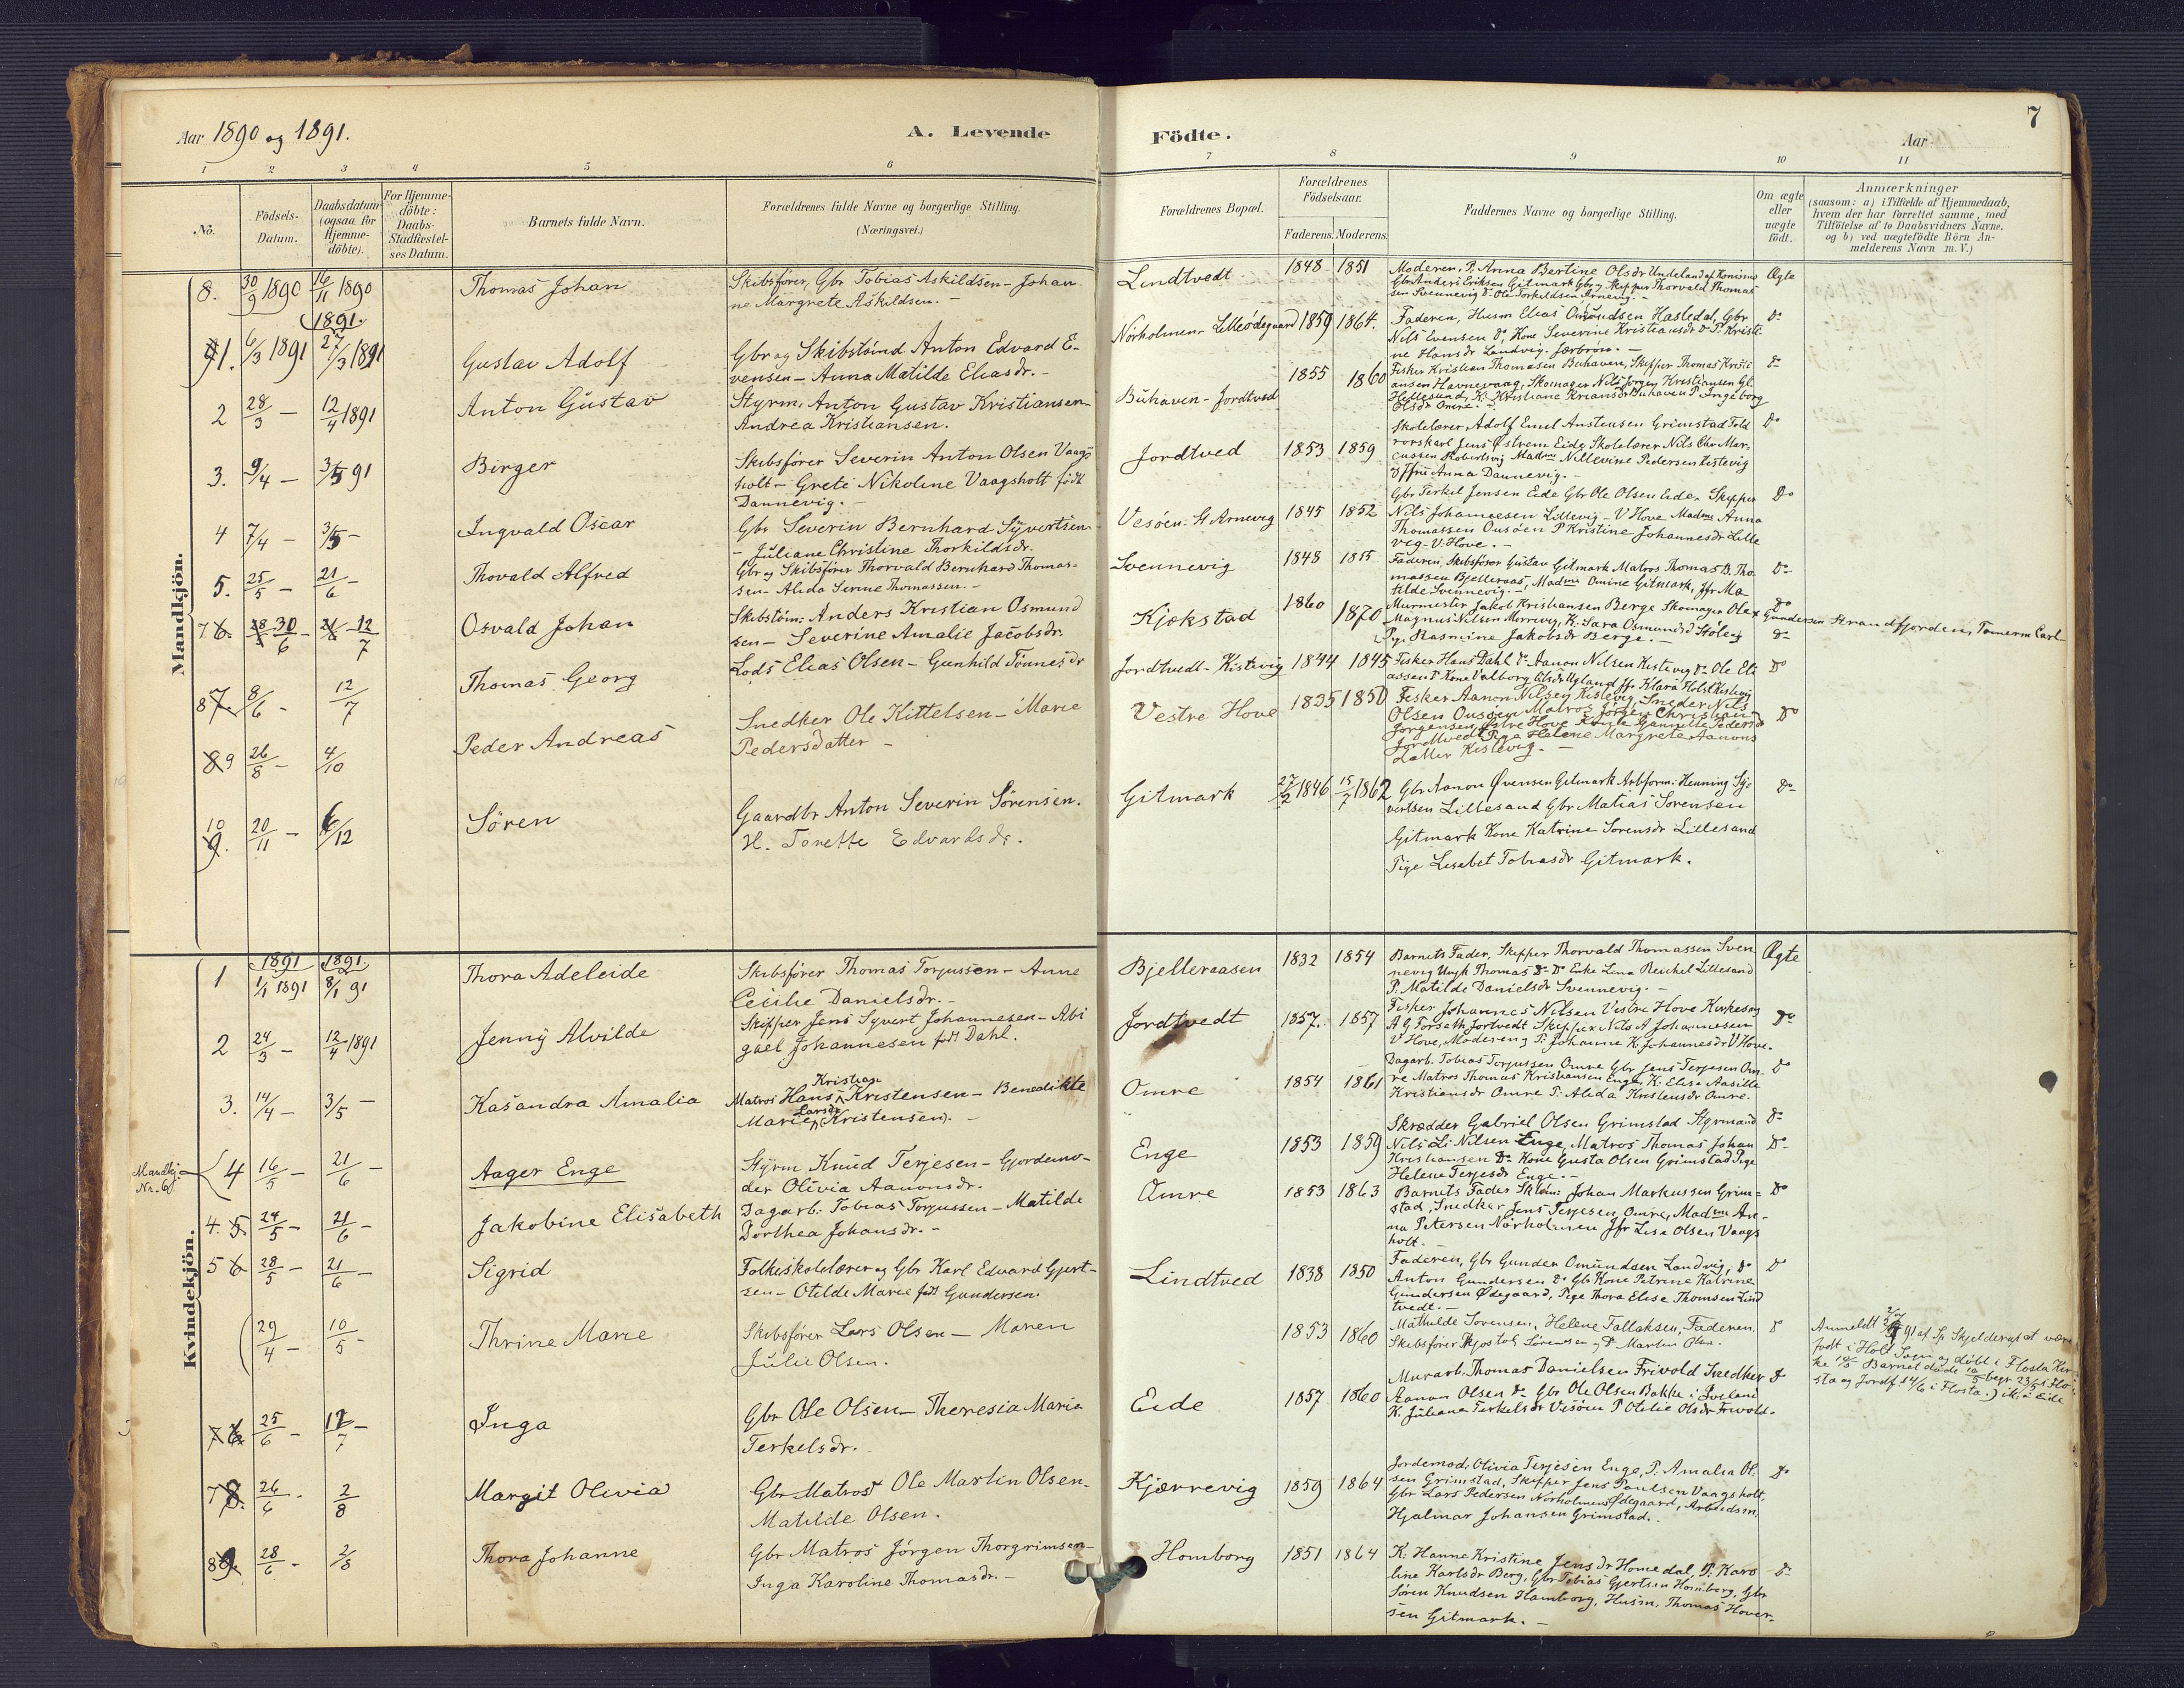 Aar 1890 og 1891.
A. Levende
Födte.
Aar
7
1 2 3 4 5 6 7 8 9 10 11
No.
Födsels-
Datum.
Daabsdatum
(ogsaa for
Hjemme-
döbte).
For Hjemme-
döbte:
Daabs-
Stadfæstel-
ses Datum.
Barnets fulde Navn.
Forældrenes fulde Navne og borgerlige Stilling.
(Næringsvei.)
Forældrenes Bopæl.
Forældrenes
Födselsaar.
Faderens. Moderens.
Faddernes Navne og borgerlige Stilling.
Om ægte
eller
uægte
födt.
Anmærkninger
(saasom: a) i Tilfælde af Hjemmedaab,
hvem der har forrettet samme, med
Tilföielse af to Daabsvidners Navne,
og b) ved uægtefödte Börn An-
melderens Navn m. V.)
Mandkjön.
8. 30/9 1890 16/11 1890 Thomas Johan
Skibsfører, Gbr Tobias Askildsen - Johan-
ne Margrete Askildsen. -
Lindtvedt 1848 1851
Moderen, P. Anna Bertine Olsdr Undeland af Konismo
Gbr Anders Eriksen Gitmark Gbr og Skipper Thorvald Thomas
sen Svennevig do Ole Torkildsen Arnevig. -
Ægte
1891.
1. 6/3 1891 27/3 1891 Gustav Adolf
Gbr og Skibstømd Anton Edvard E-
vensen - Anna Matilde Eliasdr. -
Norholmen - Lilleödegaard 1859 1864.
Faderen, Husm Elias Omundsen Hasledal, Gbr
Nils Evensen do, Kone Severine Kristiansdr do P. Kristi-
ne Hansdr Landvig - Jærbrøn. -
Do
2 28/3 - 12/4 1891 Anton Gustav
Styrm. Anton Gustav Kristiansen -
Andrea Kristiansen.
Buhaven - Jordtved 1855 1860
Fisker Kristian Thomasen Buhaven, Skipper Thomas Kristi
ansen Havnevaag, Skomager Nils Jorgen Kristiansen Gl.
Hellesund, K. Kristiane Kriansdr Buhaven P Ingeborg
Olsdr Omre. -
Do
3. 9/4 - 3/5 91 Birger
Skibsfører Severin Anton Olsen Vaags
holt - Grete Nikoline Vaagsholt født
Dannevig. -
Jordtved 1853 1859
Skolelærer Adolf Emil Anstensen Grimstad Told
rorskarl Jens Østrem Eide Skolelærer Nils Chr Mar-
cussen Robertsvig Madme Nillevine Pedersen Kistevig
og Jfru Anna Dannevig. -
Do
4 7/4 - 3/5 - Ingvald Oscar
Gbr Severin Bernhard Syvertsen
- Juliane Christine Thorkildsdr.
Vesöen. St Arnevig 1845 1852
Gbr Terkel Jensen Eide Gbr Ole Olsen Eide, Skipper
Nils Johannesen Lillevig - V Hove Madme Anna
Thomassen Ousøen P Kristine Johannesdr Lille
veg - V. Hove. -
Do
5. 25/5 - 21/6 - Thovald Alfred
Gbr og Skibsfører Thorvald Bernhard Thomas-
sen - Alida Serine Thomassen. -
Svennevig 1848 1855
Faderen, Skibsfører Gustav Gitmark Matros Thomas B. Tho-
massen Bjelleraas, Madme Omine Gitmark, Jfr Ma-
tilde Svennevig. -
Do
7 30/6 - 12/7 Osvald Johan
Skibstøm: Anders Kristian Osmund
sen - Severine Amalie Jacobsdr.
Kjøkstad 1860 1870
Murmester Jakob Kristiansen Berge Skomager Ole Gundersen Strandfjorden, Tømerm Carl
Magnus Nilsen Morrevig, K. Sara Osmundsd Støle og
Pige Rasmine Jakobsdr Berge. -
Do
8 8/6 - 12/7 Thomas Georg
Lods Elias Olsen - Gunhild Tønnesdr
Jordtvedt - Kistevig 1844 1845
Fisker Hans Dahl do Aanon Nilsen Kistevig do Ole Eli
assen do Kone Valborg Olsdr Ugland Jfr Klara Holst Kistevig
Do
9 26/8 - 4/10 Peder Andreas
Snedker Ole Kittelsen - Marie
Pedersdatter -
Vestre Hove 1835 1850
Fisker Aanon Nilsen Kistevig, Sneder Nils
Olsen Ousøen Matros Jorgen Christian
Jorgensen Østre Hove Kone Gannette Pedersdr
Jordtvedt Pige Helene Margrete Aanons
datter Kistevig. -
Do
10 20/11 - 6/12 Sören
Gaardbr Anton Severin Sörensen.
H. Tonette Edvardsdr.
Gitmark 27/2 1846 15/7 1862
Gbr Aanon Øvensen Gitmark Arbform: Henning Sy-
vertsen Lillesand Gbr Matias Sorensen
Gitmark Kone Katrine Sorensdr Lillesand
Pige Lisabet Tobiasdr Gitmark.
Do
Kvindekjön.
1891 1891.
1 1/1 1891 8/1 91 Thora Adeleide
Skibsfører Thomas Torjussen - Anne
Cecilie Danielsdr. -
Bjelleraasen 1832 1854
Barnets Fader, Skipper Thorvald Thomassen Sven
nevig Ungk Thomas do Do Enke Lina Reichel Lillesand
P. Matilde Danielsdr Svennevig. -
Ægte
2 24/3 - 12/4 1891 Jenny Alvilde
Skipper Jens Syvert Johannesen - Abi
gael Johannesen født Dahl.
Jordtvedt 1857. 1857
Fisker Johannes Nilsen Vestre Hove Kirkesang
A G Forsath Jortvedt Skipper Nils A Johannesen
V Hove, Moderen og P. Johanne K. Johannesdr V Hove.
Do
3. 14/4 - 3/5 - Kasandra Amalia
Kristian
Matros Hans Kristensen - Benedikte
Larsdr
Marie Kristensen. -
Omre 1854 1861
Dagarb. Tobias Torjussen Omre Gbr Jens Terjesen Om-
re Matros Thomas Kristiansen Enge, K. Elise Aasille
Kristiansdr Omre P. Alida Kristensdr Omre.
Do
Mandkj
Nr. 6.
4 16/5 - 21/6 - Aager Enge
Styrm Knud Terjesen - Gjordemo-
der Olivia Aanonsdr.
Enge 1853 1859
Skrædder Gabriel Olsen Grimstad Styrmand
Nils Li Nilsen Enge, Matros Thomas Johan
Kristiansen do Kone Gusta Olsen Grimstad Pige
Helene Terjesdr Enge. -
Do
4. 24/5 - 21/6 - Jakobine Elisabeth
Dagarb. Tobias Torjussen - Matilde
Dorthea Johansdr. -
Omre 1853 1863
Barnets Fader Sktöm: Johan Markussen Grim=
stad, Snedker Jens Terjesen Omre, Madme An-
na Petersen Nörholmen Jfr Lisa Olsen Vaags
holt. -
Do
5 28/5 - 21/6 - Sigrid
Folkeskolelærer og Gbr Karl Edvard Gjert-
sen - Otilde Marie født Gundersen.
Lindtved 1838 1850
Faderen, Gbr Gunder Omundsen Landvig, do
Anton Gundersen do Gb Kone Petrine Katrine
Gundersen Ødegaard, Pige Thora Elise Thomsen Lind
tvedt. -
Do
29/4 - 10/5 - Thrine Marie
Skibsfører Lars Olsen - Maren
Julie Olsen.
1853 1860
Mathilde Sorensen, Helene Tallaksen, Faderen.
Skibsfører Sörensen og do Martin Olsen.
Anmeldt 91 af Sp Skjelderup at være
født i Holt Sogn og döbt i Flosta Kir-
ke 10/5 Barnet döde begr 23/5 i Flo
sta og Jordf. 14/6 i Flosta.) ik. i Eide
25/6 - 12/7 - Inga
Gbr Ole Olsen - Theresia Maria
Terkelsdr.
Eide 1857 1860
Murarb. Thomas Danielsen Frivold Snedker
Aanon Olsen do Gbr Ole Olsen Bakke i Iveland
K. Juliane Terkelsdr Vesöen P Otelie Olsdr Frivold.
Do
7 26/6 - 2/8 Margit Olivia
Gbr Matros Ole Martin Olsen -
Matilde Olsen.
Kjærrevig 1859 1864
Jordemod: Olivia Terjesen Enge, P. Amalia Ol-
sen Grimstad, Skipper Jens Paulsen Vaagsholt,
Gbr Lars Pedersen Norholmens Ødegaard, Arbeidsm.
Hjalmar Johansen Grimstad.
Do
8 28/6 - 2/8 Thora Johanne
Gbr Matros Jörgen Thorgrimsen -
Inga Karoline Thomasdr. -
Homborg 1851 1864
K. Hanne Kristine Jensdr Homedal, P. Karo
line Karlsdr Berg, Gbr Tobias Gjertsen Homborg, Gbr
Sören Knudsen Hamborg, Husm. Thomas Hover-
sen Gitmark. -
Do